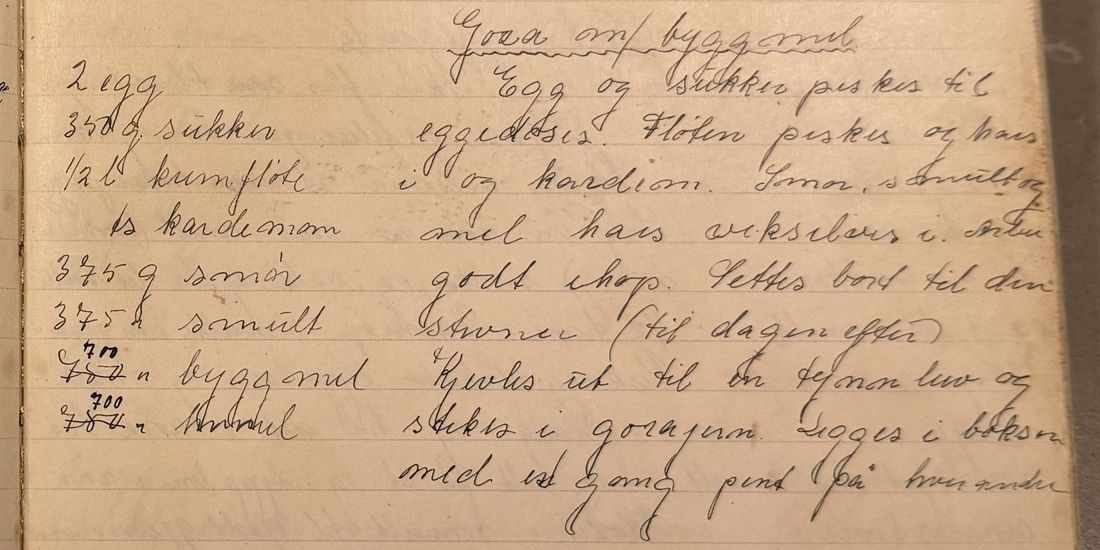 Goraa m/ byggmel
2 egg
350 g sukker
1/2 l kremfløte
ts kardemom
375 g smør
375 " smult
700
750 " byggmel
700
750 " hvmel
Egg og sukker piskes til
eggedosis. Fløten piskes og haes
i og kardem. Smør, smult og
mel haes vekselvis i.
godt ihop. Settes bort til den
stivner (til dagen efter)
Kjevles ut til en tynn leiv og
stekes i gorajern. Legges i boksen
med en gang pent på hverandre